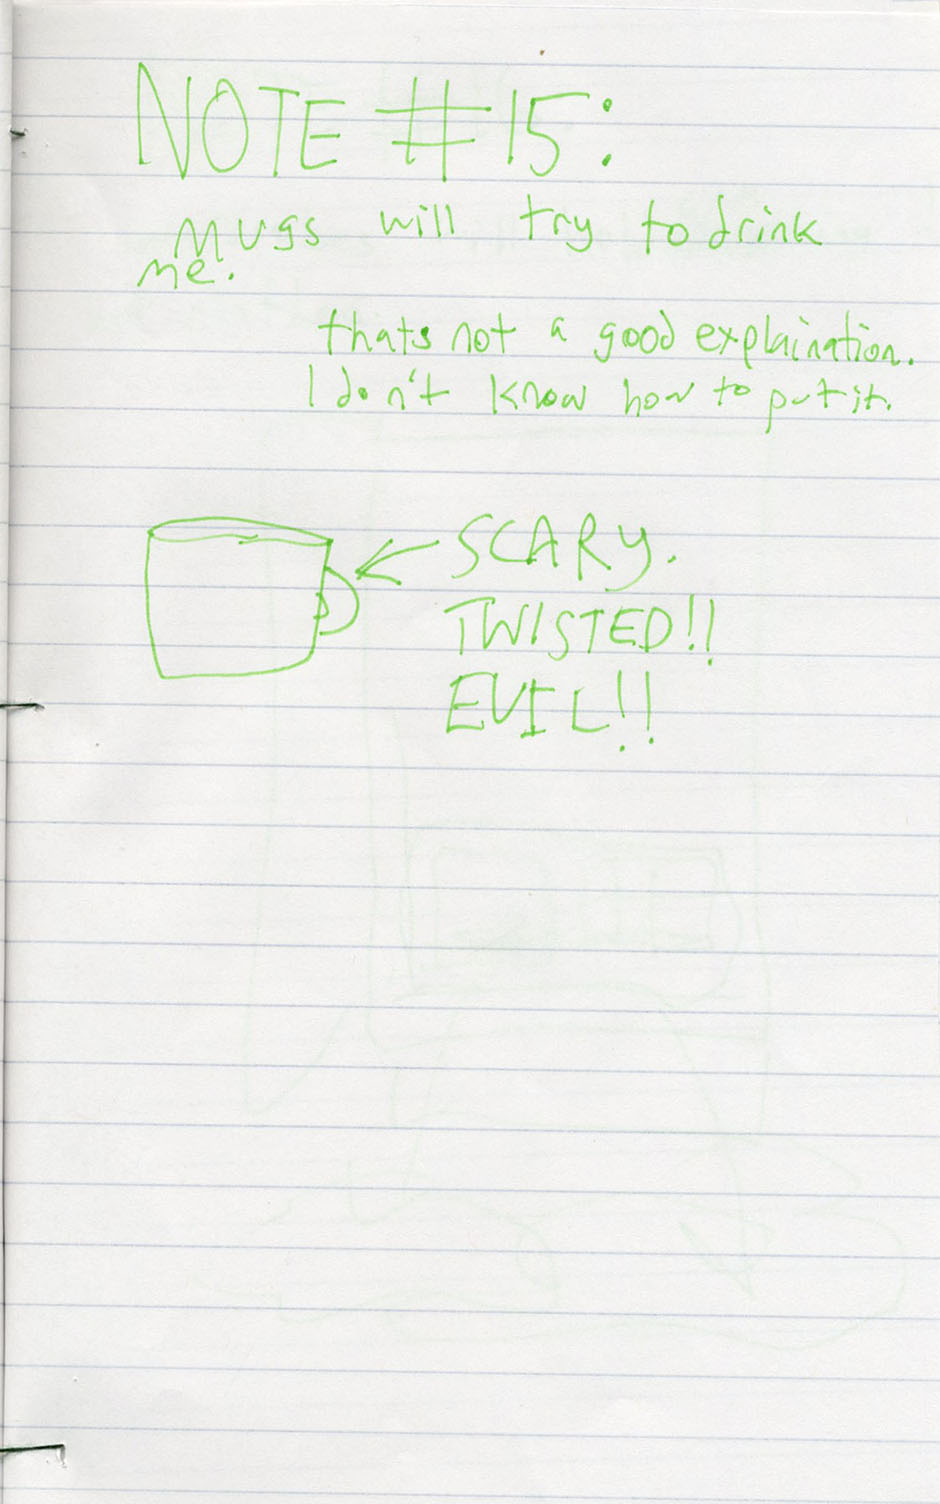 NOTE #15:
MUGS will try to drink
me.
thats not a good explaination.
I don't know how to put it.
SCARY.
TWISTED!!
EVIL!!